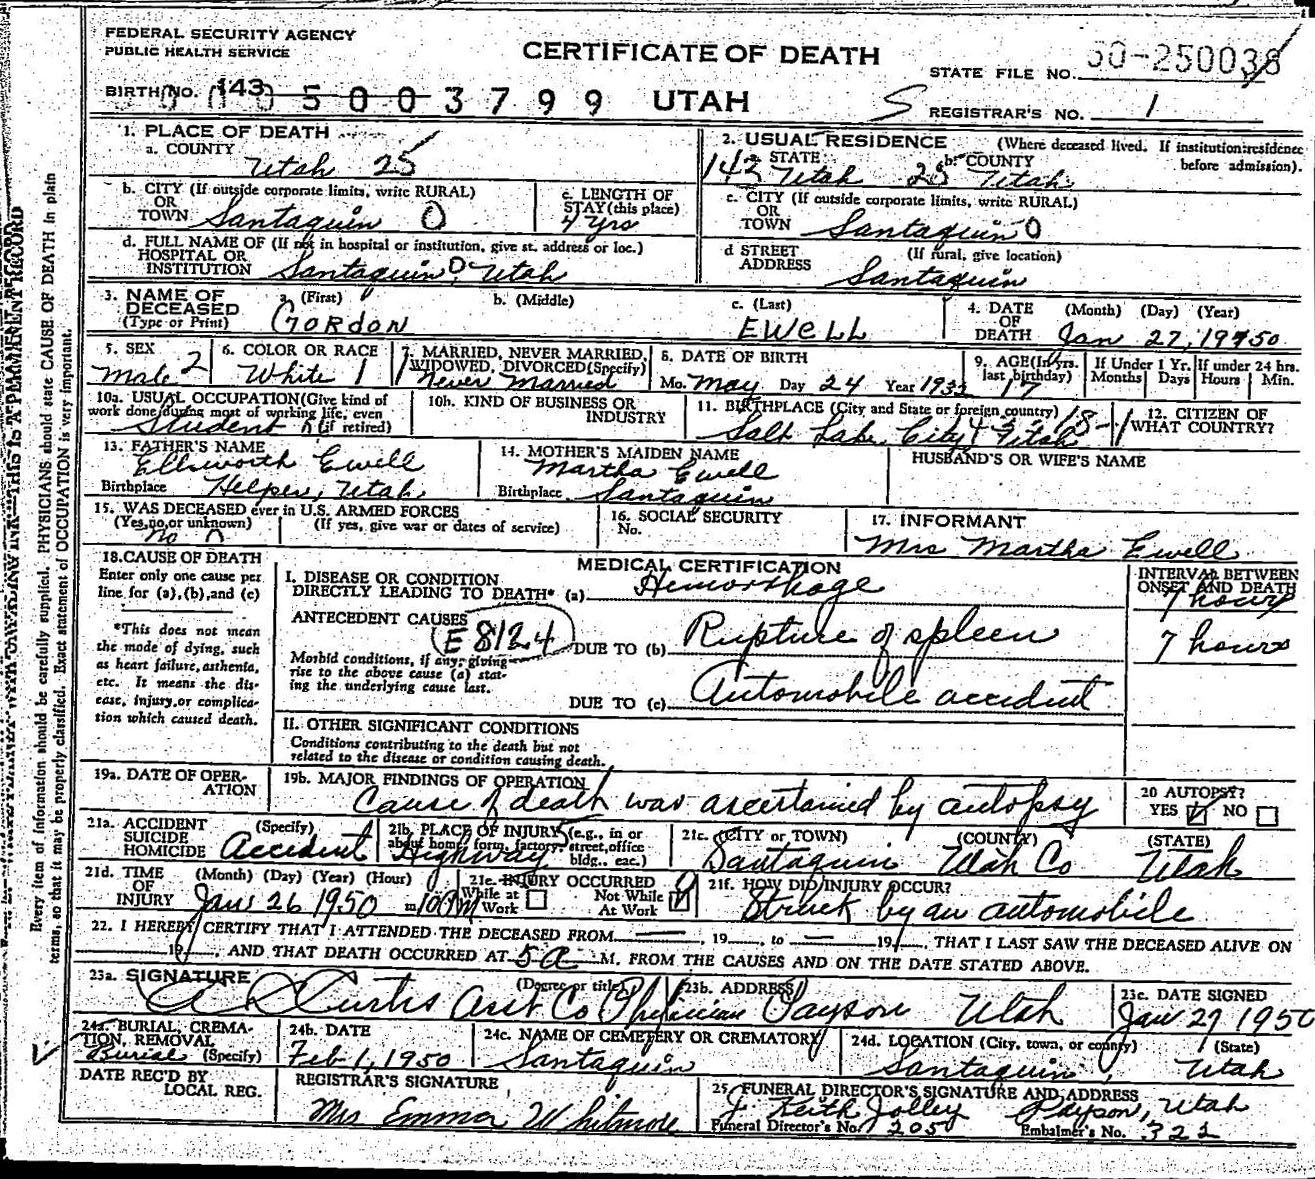 FEDERAL SECURITY AGENCY
PUBLIC HEALTH SERVICE
CERTIFICATE OF DEATH
STATE FILE NO. 50-250038
BIRTH NO. 143 5003799 UTAH
S REGISTRAR'S NO. 1
1. PLACE OF DEATH
a. COUNTY
Utah 25
2. USUAL RESIDENCE (Where deceased lived. If institution: residence before admission).
143 STATE Utah 25 b. COUNTY Utah
b. CITY (If outside corporate limits, write RURAL)
OR
TOWN Santaquin 0
c. LENGTH OF STAY (this place)
4 yrs
c. CITY (If outside corporate limits, write RURAL)
OR
TOWN Santaquin 0
d. FULL NAME OF (If not in hospital or institution, give st. address or loc.)
HOSPITAL OR
INSTITUTION Santaquin, Utah
d STREET ADDRESS (If rural, give location)
Santaquin
3. NAME OF DECEASED
(Type or Print)
a. (First) GORDON
b. (Middle)
c. (Last) EWELL
4. DATE OF DEATH (Month) (Day) (Year)
Jan 27, 1950
5. SEX
Male 2
6. COLOR OR RACE
White 1
7. MARRIED, NEVER MARRIED, WIDOWED, DIVORCED (Specify)
Never Married
8. DATE OF BIRTH
Mo. May Day 24 Year 1932
9. AGE (In yrs. last birthday) 17
If Under 1 Yr. Months Days
If under 24 hrs. Hours Min.
10a. USUAL OCCUPATION (Give kind of work done during most of working life, even if retired)
Student
10b. KIND OF BUSINESS OR INDUSTRY
11. BIRTHPLACE (City and State or foreign country)
Salt Lake City Utah
12. CITIZEN OF WHAT COUNTRY?
13. FATHER'S NAME
Ellsworth Ewell
Birthplace Helper, Utah
14. MOTHER'S MAIDEN NAME
Martha Ewell
Birthplace Santaquin
HUSBAND'S OR WIFE'S NAME
15. WAS DECEASED ever in U.S. ARMED FORCES
(Yes, no, or unknown) (If yes, give war or dates of service)
No
16. SOCIAL SECURITY No.
17. INFORMANT
Mrs Martha Ewell
18. CAUSE OF DEATH
Enter only one cause per line for (a), (b), and (c)
*This does not mean the mode of dying, such as heart failure, asthenia, etc. It means the disease, injury, or complication which caused death.
MEDICAL CERTIFICATION
INTERVAL BETWEEN ONSET AND DEATH
I. DISEASE OR CONDITION DIRECTLY LEADING TO DEATH* (a) Hemorrhage 7 hours
ANTECEDENT CAUSES
E8124
DUE TO (b) Rupture of spleen 7 hours
Morbid conditions, if any, giving rise to the above cause (a) stating the underlying cause last.
DUE TO (c) Automobile accident
II. OTHER SIGNIFICANT CONDITIONS
Conditions contributing to the death but not related to the disease or condition causing death.
19a. DATE OF OPERATION
19b. MAJOR FINDINGS OF OPERATION
Cause of death was ascertained by autopsy
20 AUTOPSY?
YES NO
21a. ACCIDENT SUICIDE HOMICIDE (Specify)
Accident
21b. PLACE OF INJURY (e.g., in or about home, farm, factory, street, office bldg., eac.)
Highway
21c. (CITY or TOWN) (COUNTY) (STATE)
Santaquin Utah Co Utah
21d. TIME OF INJURY (Month) (Day) (Year) (Hour)
Jan 26 1950 10 PM
21e. INJURY OCCURRED
While at Work Not While At Work
21f. HOW DID INJURY OCCUR?
Struck by an automobile
22. I HEREBY CERTIFY THAT I ATTENDED THE DECEASED FROM , 19 , to 19 , THAT I LAST SAW THE DECEASED ALIVE ON
19 , AND THAT DEATH OCCURRED AT 5 A M. FROM THE CAUSES AND ON THE DATE STATED ABOVE.
23a. SIGNATURE (Degree or title)
Curtis Asst Co Physician
23b. ADDRESS
Payson Utah
23c. DATE SIGNED
Jan 27 1950
24a. BURIAL, CREMATION, REMOVAL (Specify)
Burial
24b. DATE
Feb 1, 1950
24c. NAME OF CEMETERY OR CREMATORY
Santaquin
24d. LOCATION (City, town, or county) (State)
Santaquin, Utah
DATE REC'D BY LOCAL REG.
REGISTRAR'S SIGNATURE
Mrs Emma Whitmore
25 FUNERAL DIRECTOR'S SIGNATURE AND ADDRESS
J Keith Jolley Payson, Utah
Funeral Director's No. 205 Embalmer's No. 322
Every item of information should be carefully supplied. PHYSICIANS should state CAUSE OF DEATH in plain
terms, so that it may be properly classified. Exact statement of OCCUPATION is very important.
THIS IS A PERMANENT RECORD